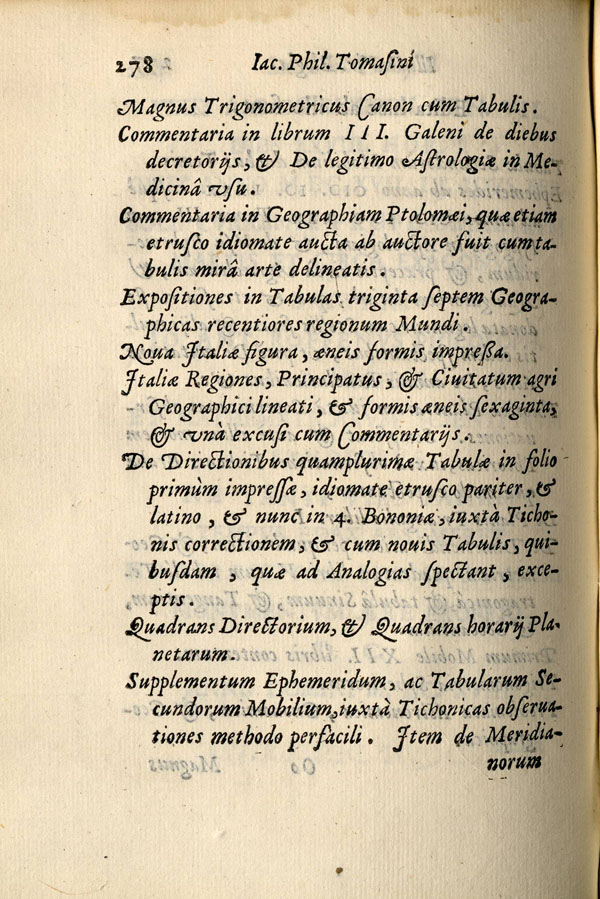 278 Iac. Phil. Tomasini
Magnus Trigonometricus Canon cum Tabulis.
Commentaria in librum III. Galeni de diebus
decretorijs, & De legitimo Astrologiæ in Me-
dicinâ vsu.
Commentaria in Geographiam Ptolomæi, quæ etiam
etrusco idiomate aucta ab auctore fuit cum ta-
bulis mirâ arte delineatis.
Expositiones in Tabulas triginta septem Geogra-
phicas recentiores regionum Mundi.
Noua Italiæ figura, æneis formis impressa.
Italiæ Regiones, Principatus, & Ciuitatum agri
Geographici lineati, & formis æneis sexaginta,
& vnà excusi cum Commentarijs.
De Directionibus quamplurimæ Tabulæ in folio
primùm impressæ, idiomate etrusco pariter, &
latino, & nunc in 4. Bononiæ, iuxtà Ticho-
nis correctionem, & cum nouis Tabulis, qui-
busdam, quæ ad Analogias spectant, exce-
ptis.
Quadrans Directorium, & Quadrans horarij Pla-
netarum.
Supplementum Ephemeridum, ac Tabularum Se-
cundorum Mobilium, iuxtà Tichonicas obserua-
tiones methodo perfacili. Item de Meridia-
norum